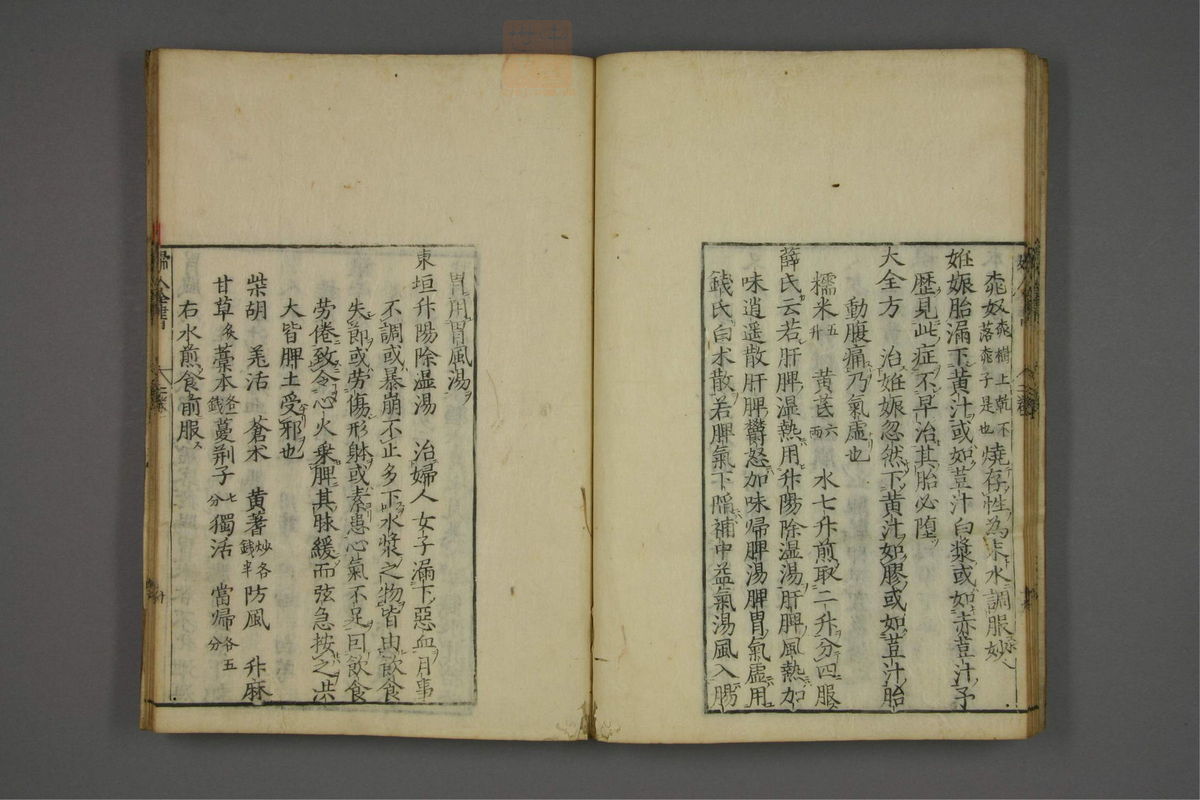 桒奴桒樹上乾不落桒子是也燒存性為末水調服妙
姙娠胎漏下黄汁或如荳汁白漿或如赤荳汁予
歷見此症不早治其胎必堕
大全方　治姙娠忽然下黄汁如膠或如荳汁胎
動腹痛乃氣虛也
糯米五升　黄芪六兩　水七升煎取二升分四服
薛氏云若肝脾湿熱用升陽除湿湯肝脾風熱加
味逍遥散肝脾鬱怒加味帰脾湯脾胃氣虚用
錢氏白术散若脾氣下陷補中益氣湯風入腸
胃用胃風湯
東垣升陽除湿湯　治婦人女子漏下惡血月事
不調或暴崩不止多下水漿之物皆由飲食
失節或劳傷形躰或素患心氣不足囙飲食
劳倦致令心火乗脾其脉緩而弦急按之洪
大皆脾土受邪也
柴胡　羌活　蒼术　黄蓍炒各錢半　防風　升麻
甘草炙　藁本各一錢　蔓荆子七分　獨活　當帰各五分
右水煎食前服